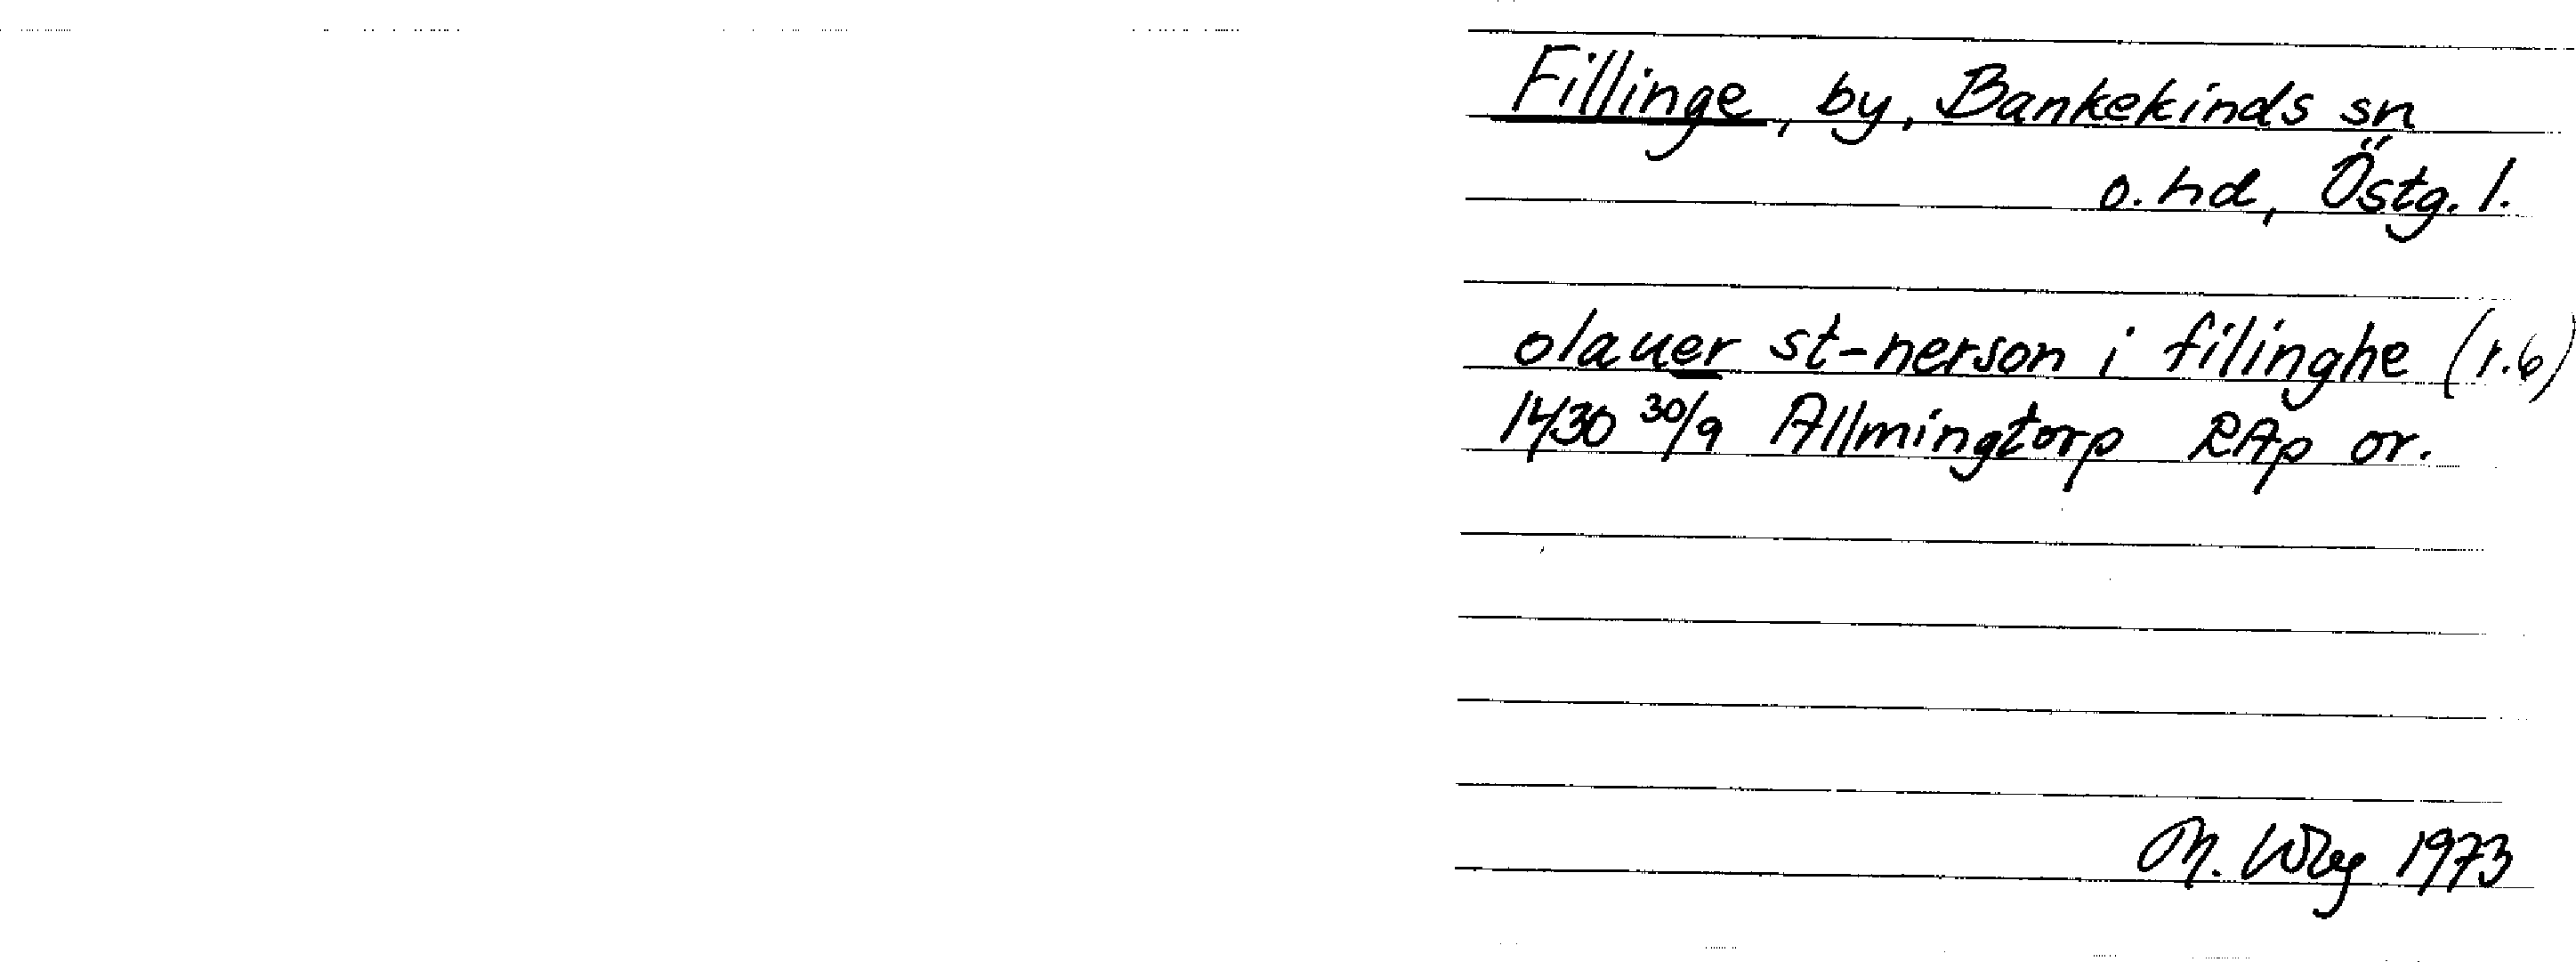 Fillinge, by, Bankekinds sn
o. hd, Östg. l.
olauer st-nerson i filinghe (r.6)
1430 30/9 Allmingtorp RAp or.
M. Wbg 1973